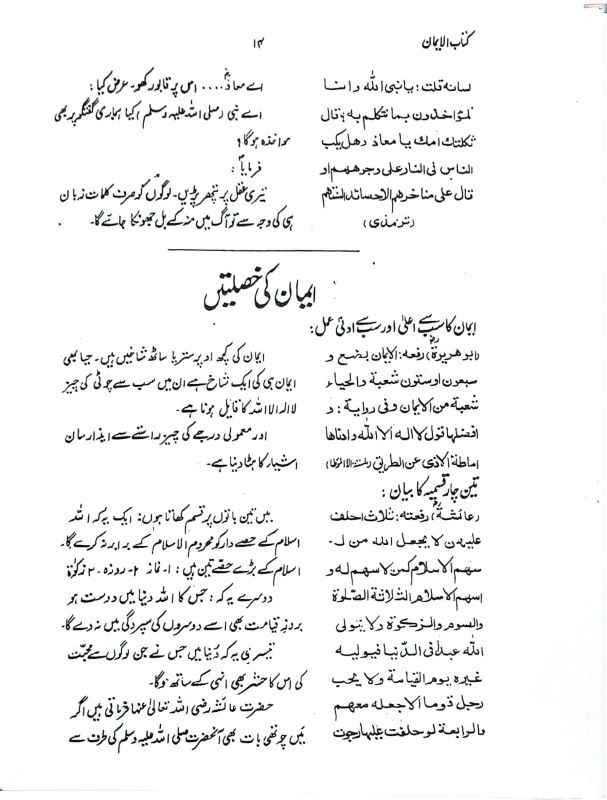 کتاب الایمان
۱۴
لسانه قلت: یا نبی الله و انا
لمؤاخذون بما نتکلم به؟ قال
ثکلتك امك یا معاذ و هل یکب
الناس فی النار علی وجوههم او
قال علی مناخرهم الاحصائد السنتهم
(ترمذی)
اے معاذؓ.... اس پر قابو رکھو۔ عرض کیا:
اے نبی (صلی اللہ علیہ وسلم) کیا ہماری گفتگو پر بھی
مواخذہ ہوگا؟
فرمایا:
تیری عقل پر پتھر پڑیں۔ لوگوں کو صرف کلمات زبان
ہی کی وجہ سے تو آگ میں منہ کے بل جھونکا جائے گا۔
ایمان کی خصلتیں
ایمان کا سب سے اعلیٰ اور سب سے ادنیٰ عمل:
(ابوهریرةؓ) رفعه: الایمان بضع و
سبعون او ستون شعبة والحیاء
شعبة من الایمان وفی روایة: و
افضلها قول لا اله الا الله و ادناها
اماطة الاذی عن الطریق
ایمان کی کچھ اوپر ستر یا ساٹھ شاخیں ہیں۔ حیا بھی
ایمان ہی کی ایک شاخ ہے ان میں سب سے چوٹی کی چیز
لا الہ الا اللہ کا قایل ہونا ہے۔
اور معمولی درجے کی چیز راستے سے ایذا رساں
اشیار کا ہٹا دینا ہے۔
تین چار قسمیہ کا بیان:
(عائشةؓ) رفعته: ثلاث احلف
علیهن لا یجعل الله من لہ
سهم الاسلام کمن لا سهم له و
اسهم الاسلام الثلاثة الصلوة
والصوم والزکوة ولا یتولی
الله عبدا فی الدنیا فیولیه
غیره یوم القیامة ولا یحب
رجل قوما الا جعله معهم
والرابعة لو حلفت علیها رجوت
میں تین باتوں پر قسم کھاتا ہوں: ایک یہ کہ اللہ
اسلام کے حصے دار کو محروم الاسلام کے برابر نہ کرے گا۔
اسلام کے بڑے حصے تین ہیں: ۱۔ نماز ۲۔ روزہ۔ ۳ زکوٰۃ
دوسرے یہ کہ: جس کا اللہ دنیا میں دوست ہو
بروز قیامت بھی اسے دوسروں کی سپردگی میں نہ دے گا۔
تیسری یہ کہ دنیا میں جس نے جن لوگوں سے محبت
کی اس کا حشر بھی انہی کے ساتھ ہوگا۔
حضرت عائشہ رضی اللہ تعالیٰ عنہا فرماتی ہیں اگر
میں چوتھی بات بھی آنحضرت صلی اللہ علیہ وسلم کی طرف سے